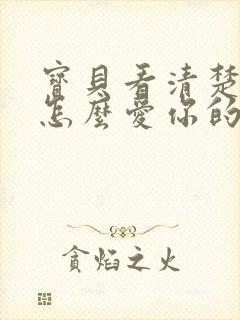 寶貝看清楚
怎麼愛你的
貪焰之火